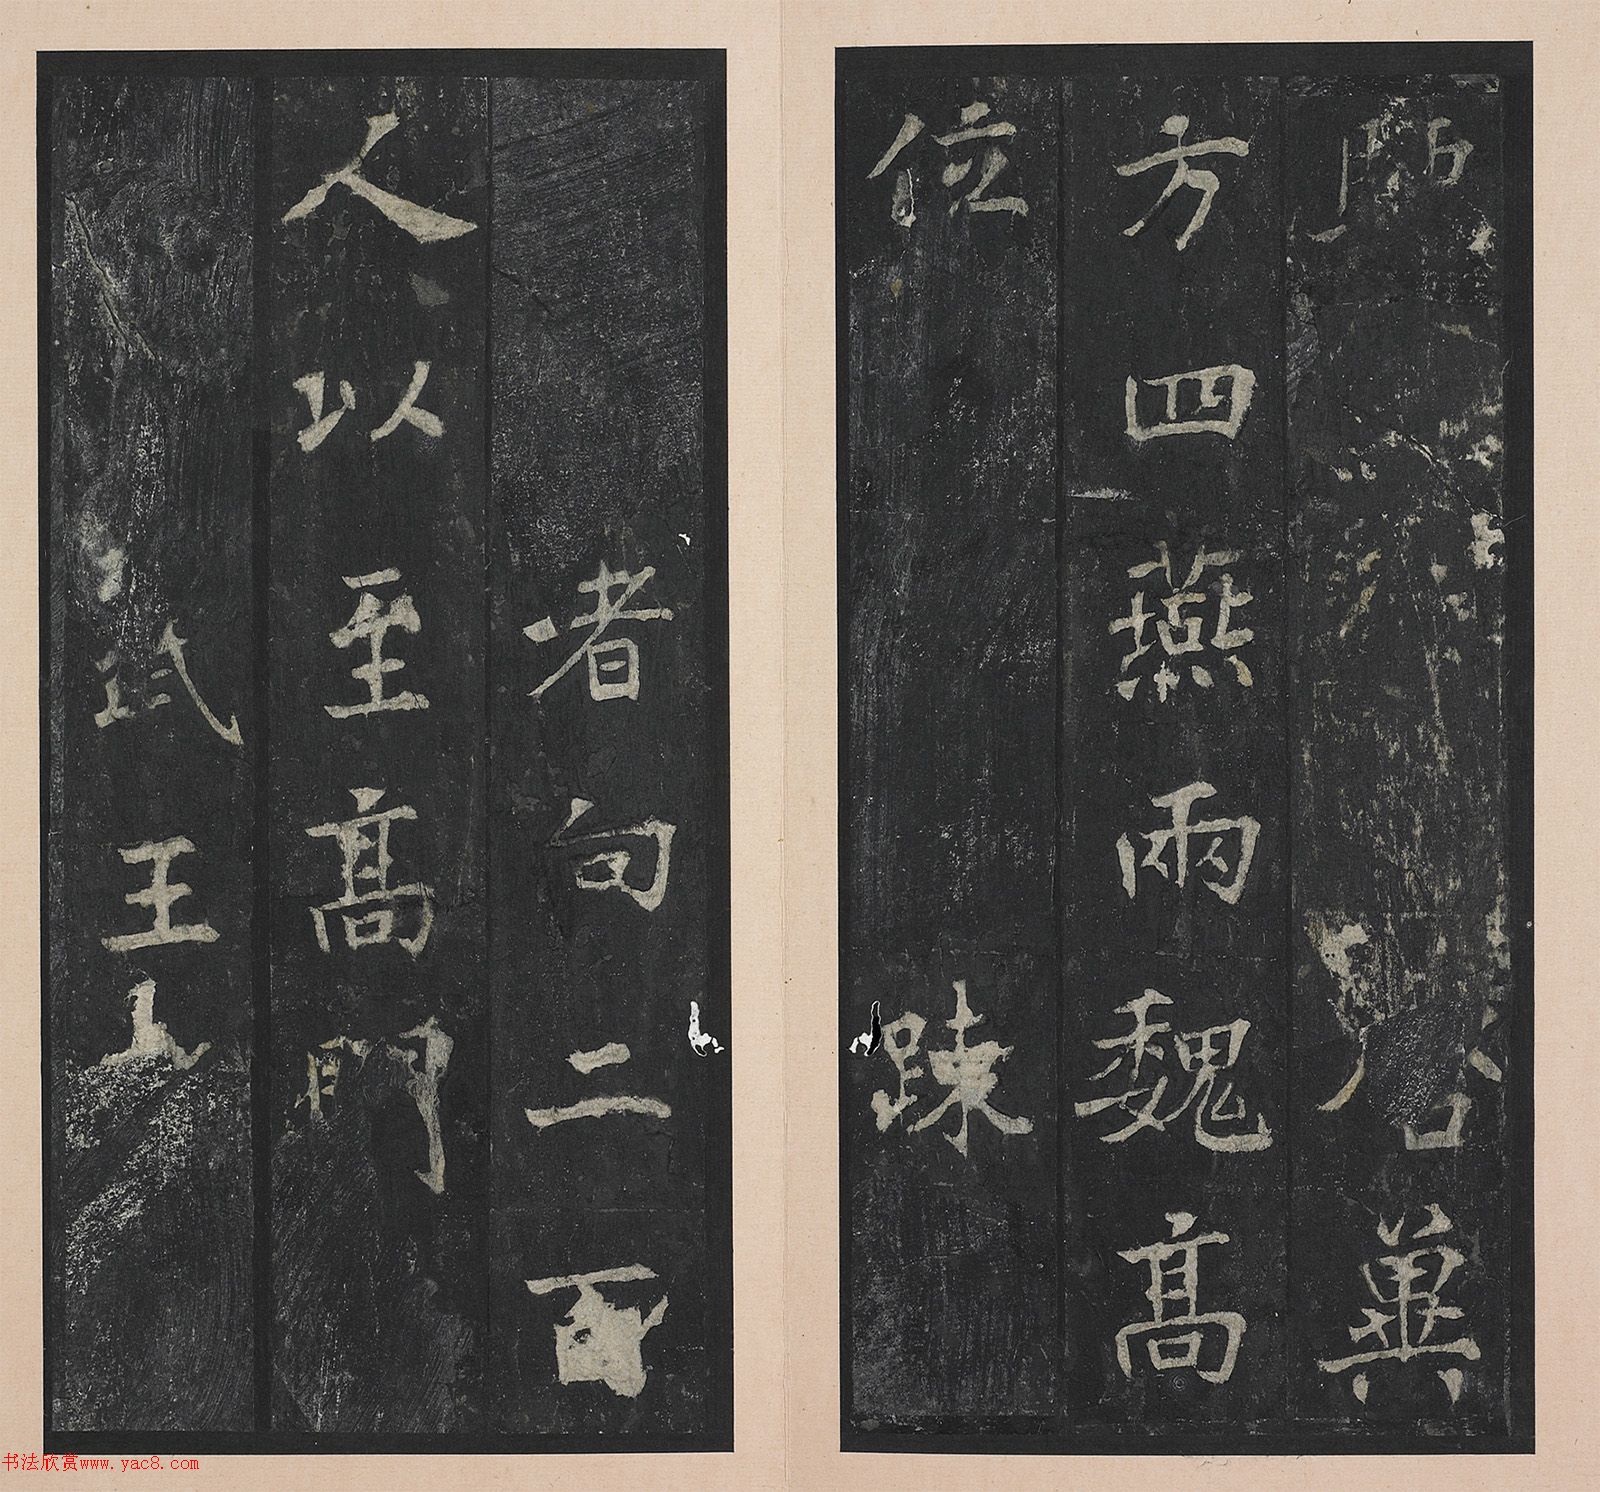 師 冀
方四燕兩魏高
位 踈
者向二百
人以至高門
武王
书法欣赏www.yac8.com